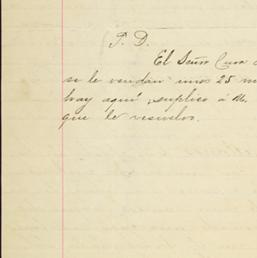 P. D.
El Señor Cura
se le vendan unos 25 m
hay aquí, suplico á
que le resuelva.